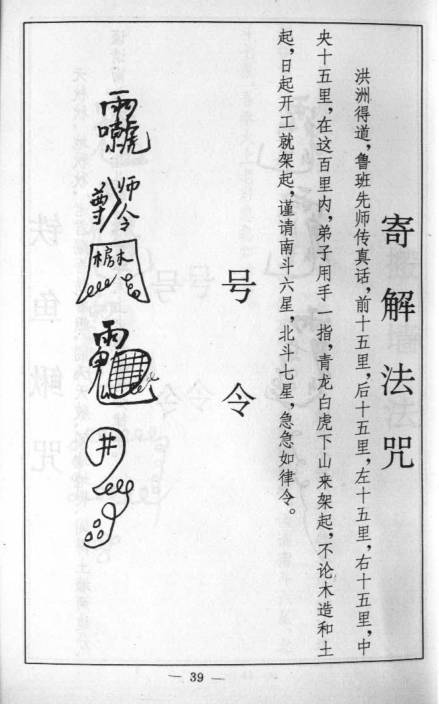 寄解法咒
洪洲得道，鲁班先师传真话，前十五里，后十五里，左十五里，右十五里，中
央十五里，在这百里内，弟子用手一指，青龙白虎下山来架起，不论木造和土
起，日起开工就架起，谨请南斗六星，北斗七星，急急如律令。
号令
师令
井
— 39 —